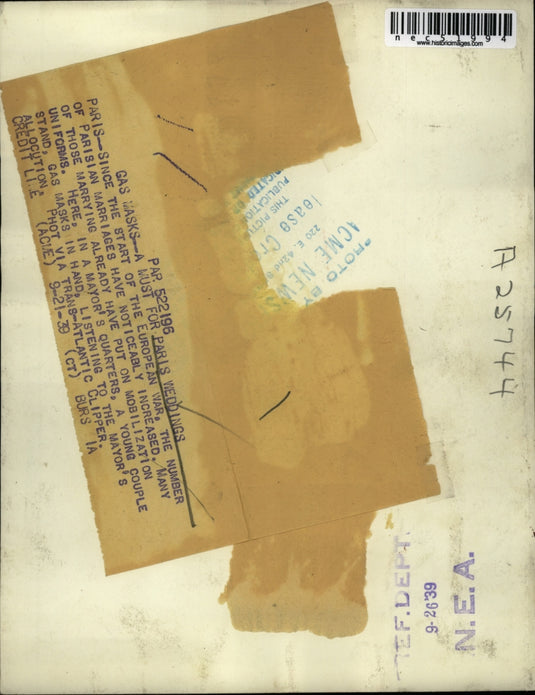 nec51994
www.historicimages.com
PAR 522196
GAS MASKS--A MUST FOR PARIS WEDDINGS
PARIS--SINCE THE START OF THE EUROPEAN WAR, THE NUMBER
OF PARISIAN MARRIAGES HAVE NOTICEABLY INCREASED. MANY
OF THOSE MARRYING ALREADY HAVE PUT ON MOBILIZATION
UNIFORMS. HERE, IN A MAYOR'S QUARTERS, A YOUNG COUPLE
STAND, GAS MASKS IN HAND, LISTENING TO THE MAYOR'S
ALLOCUTION. PHOT VIA TRANS-ATLANTIC CLIPPER.
CREDIT LINE (ACME) 9-21-39 (CT) BURS IA
PHOTO BY
ACME NEWS
220 E. 42nd
THIS PICT
PUBLICATION
A25744
EF. DEPT.
9-26 39
N.E.A.